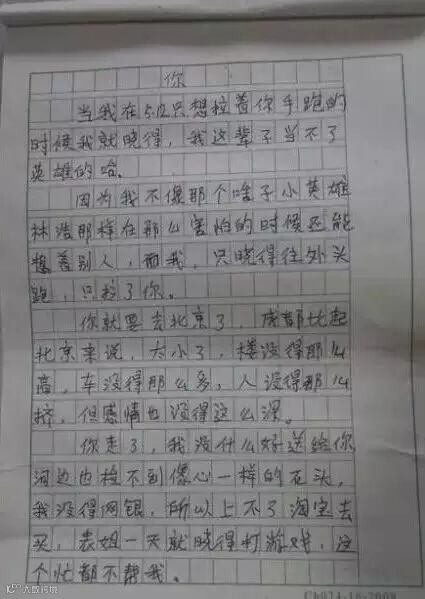 你
当我在5.12只想拉着你手跑的
时候我就晓得，我这辈子当不了
英雄的哈。
因为我不像那个啥子小英雄
林浩那样在那么害怕的时候还能
想着别人，而我，只晓得往外头
跑，只拉了你。
你就要去北京了，成都比起
北京来说，太小了，楼没得那么
高，车没得那么多，人没得那么
挤，但感情也没得这么深。
你走了，我没什么好送给你
河边也捡不到像心一样的石头，
我没得网银，所以上不了淘宝去
买，表姐一天就晓得打游戏，这
个忙都不帮我。